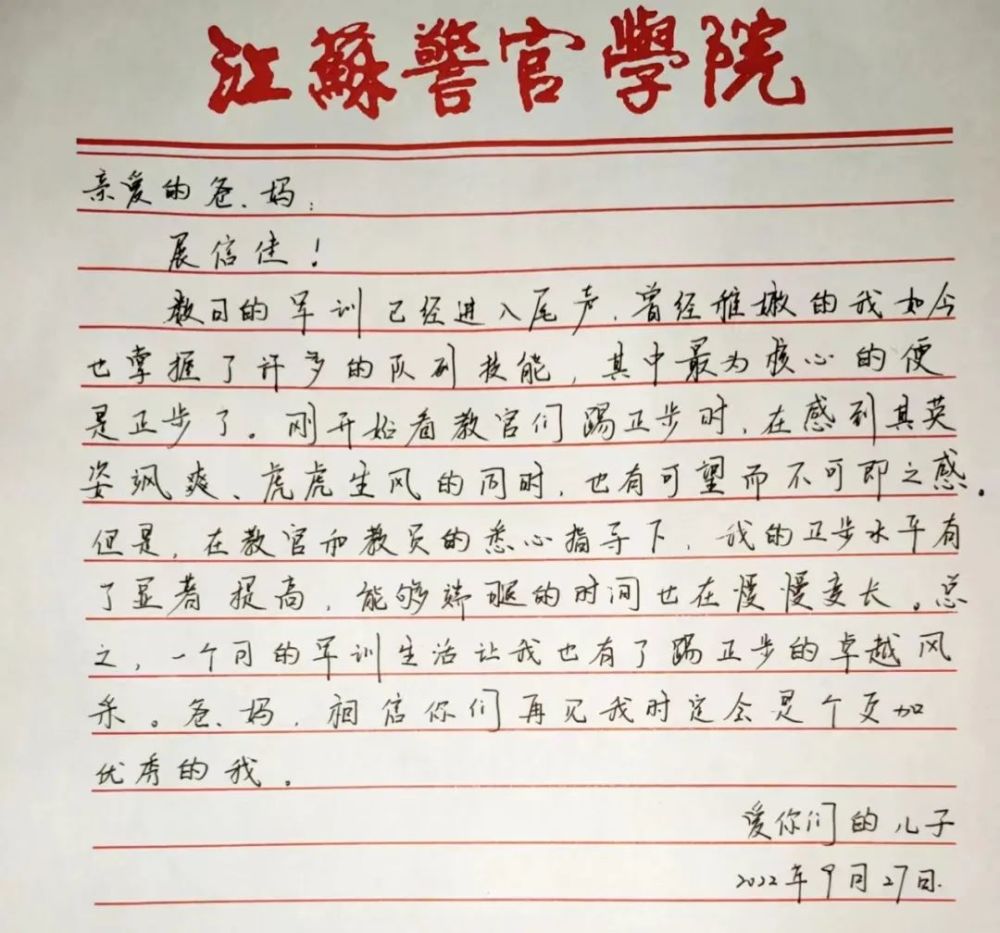 江蘇警官學院
亲爱的爸、妈:
展信佳!
数日的军训已经进入尾声,曾经稚嫩的我如今
也掌握了许多的队列技能,其中最为核心的便
是正步了。刚开始看教官们踢正步时,在感到其英
姿飒爽、虎虎生风的同时,也有可望而不可即之感.
但是,在教官和教员的悉心指导下,我的正步水平有
了显著提高,能够端腿的时间也在慢慢变长。总
之,一个月的军训生活让我也有了踢正步的卓越风
采。爸、妈,相信你们再见我时定会是个更加
优秀的我。
爱你们的儿子
2022年9月27日.